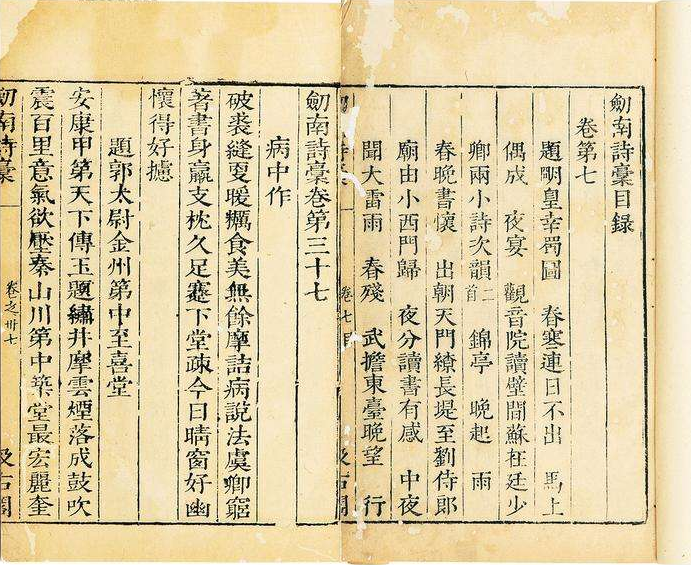 劒南詩稾目録
卷第七
題明皇幸蜀圖 春寒連日不出 馬上
偶成 夜宴 觀音院讀壁間蘇在廷少
卿兩小詩次韻二首 錦亭 晚起 雨
春晚書懷 出朝天門繚長堤至劉侍郎
廟由小西門歸 夜分讀書有感 中夜
聞大雷雨 春殘 武擔東臺晚望 行
卷七
劒南詩稾卷第三十七
病中作
破裘縫更暖糲食美無餘摩詰病說法虞卿窮
著書身羸支枕久足蹇下堂疎今日晴窗好幽
懷得好攄
題郭太尉金州第中至喜堂
安康甲第天下傳玉題繡井摩雲煙落成鼓吹
震百里意氣欲壓秦山川第中築堂最宏麗奎
劒南詩稾
卷之卅七
汲古閣